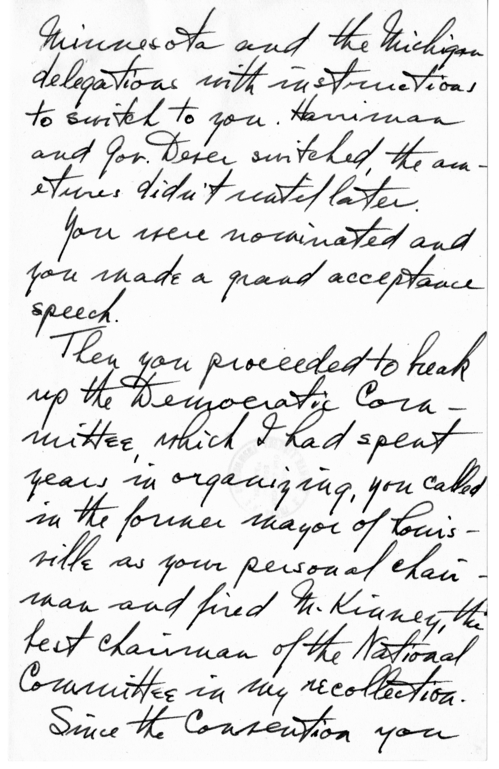 Minnesota and the Michigan
delegations with instructions
to switch to you. Harriman
and Gov. Dever switched, the am-
etures didn't until later.
You were nominated and
you made a grand acceptance
speech.
Then you proceeded to break
up the Democratic Com-
mittee, which I had spent
years in organizing, you called
in the former mayor of Louis-
ville as your personal chair-
man and fired McKinney, the
best chairman of the National
Committee in my recollection.
Since the Convention you